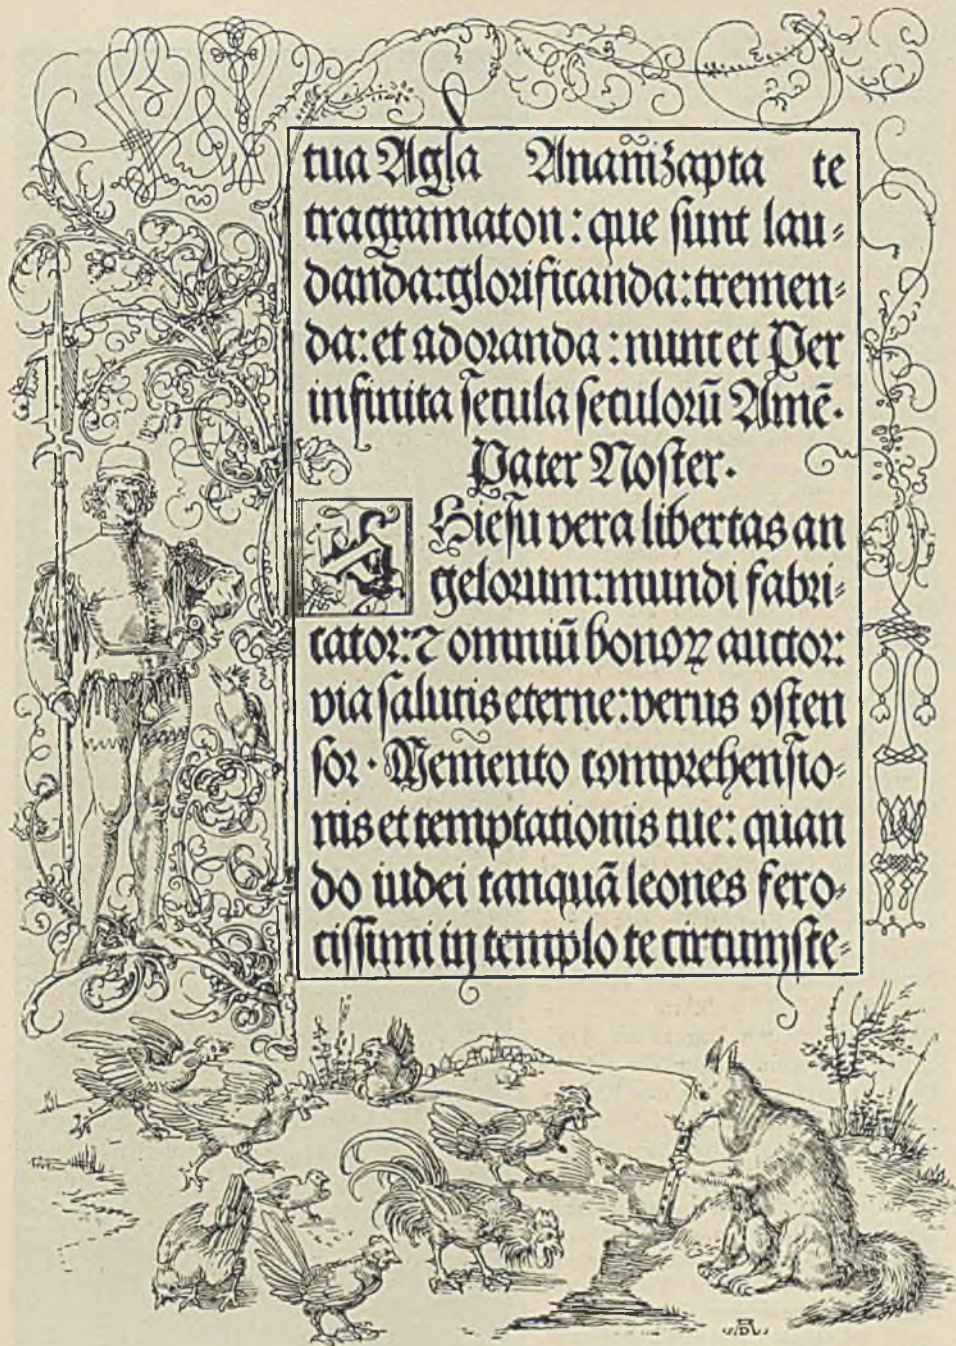 tua Agla Anañizapta te
tragramaton: que sunt lau⸗
danda: glorificanda: tremen⸗
da: et adoranda: nunc et Per
infinita secula seculorū Amē.
Pater Noster.
A Hiesu vera libertas an
gelorum: mundi fabri⸗
cator: ⁊ omniū bonoꝝ auctor:
via salutis eterne: verus osten
sor. Memento comprehensio⸗
nis et temptationis tue: quan
do iudei tanquā leones fero⸗
cissimi in templo te circumste⸗
AD